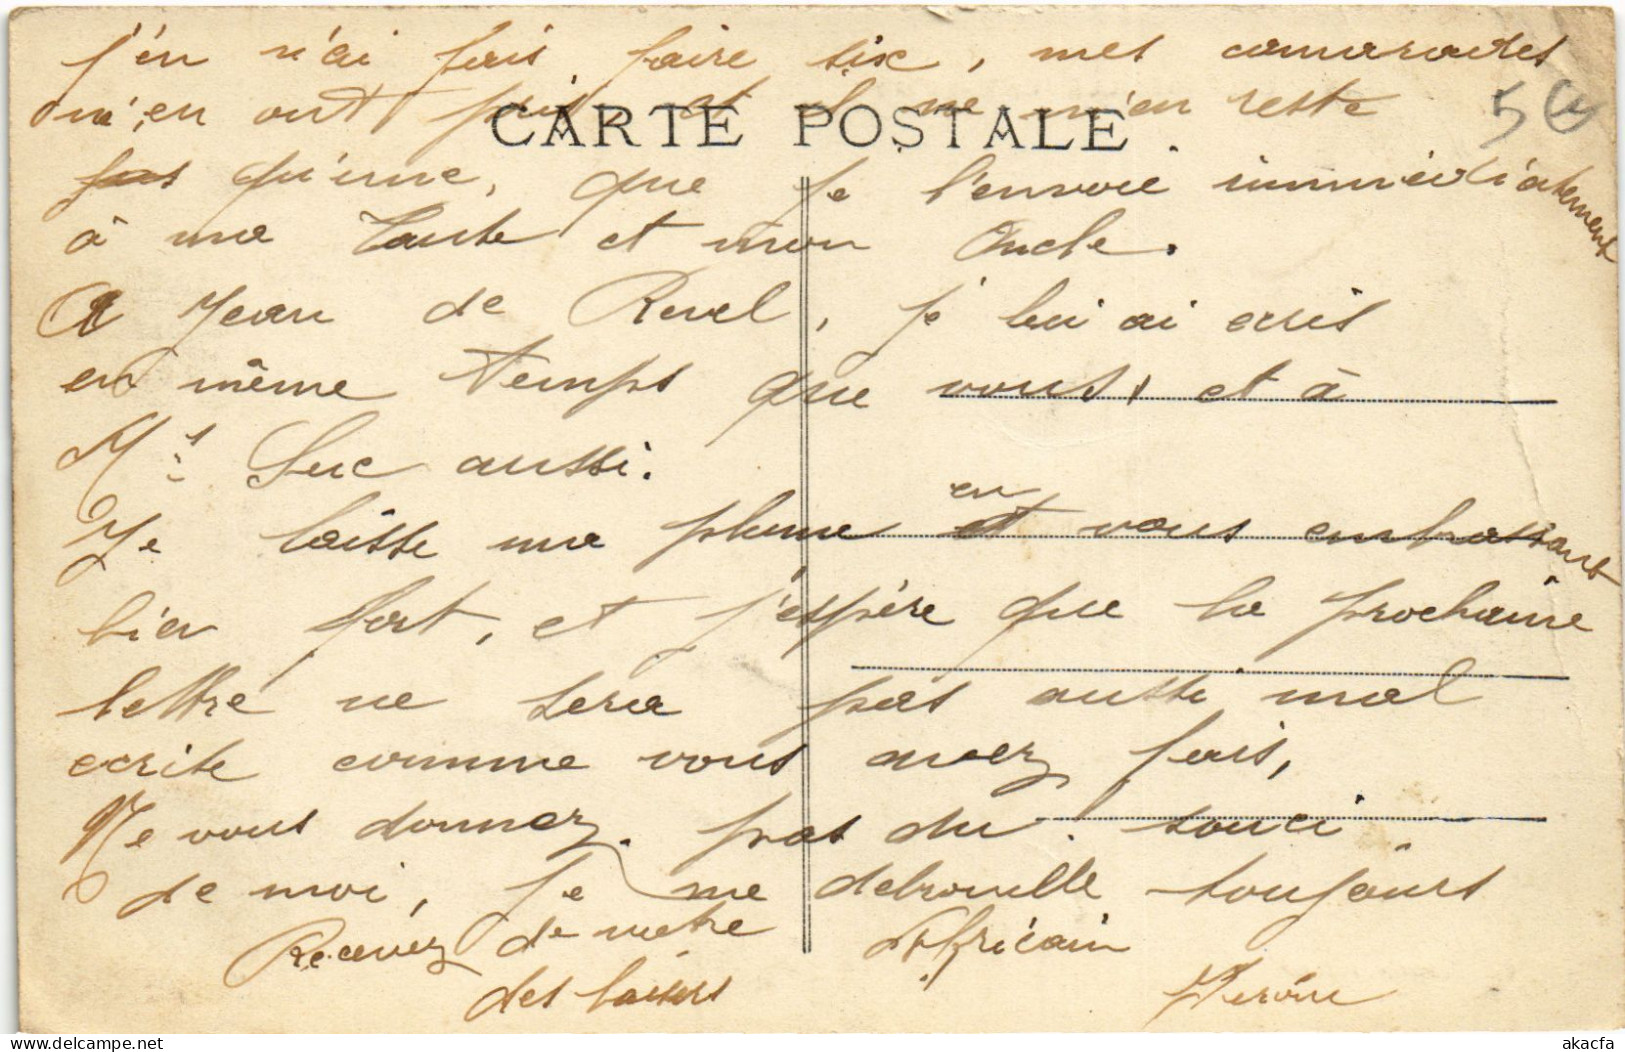 j'en n'ai fais faire six, mes camarades
5
m'en ont pris, et il ne m'en reste
CARTE POSTALE
pas qu'une, que je l'envoie immédiatement
à ma Tante et mon Oncle.
A Jean de Revel, je lui ai ecris
en même temps que vous, et à
Mr Luc aussi.
Je laisse ma plume en et vous embrassant
bien fort, et j'espère que la prochaine
lettre ne sera pas aussi mal
ecrite comme vous avez fais,
Ne vous donnez pas du souci
de moi, je me debrouille toujours
Recevez de votre Africain
des baisers
akacfa